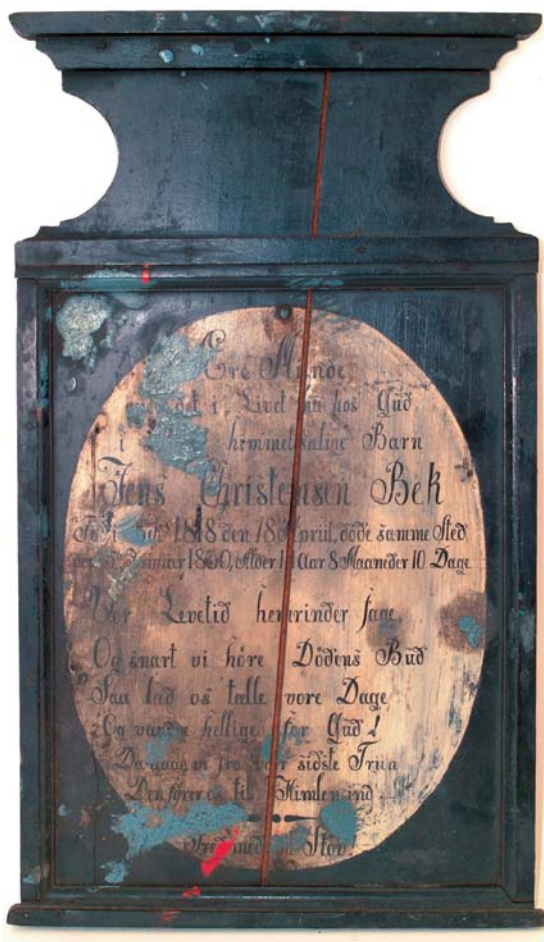 Ære Minde
det i Livet nu hos Gud
i himmelsalige Barn
Jens Christensen Bek
Föd i 1818 den 18 April, döde samme Sted
1830, Alder 11 Aar 8 Maaneder 10 Dage
Vor Levetid henrinder fage
Og snart vi höre Dödens Bud
Saa lad os tælle vore Dage
Og vandre hellige for Gud!
Da gaae vi fra vort sidste Triin
Den förer os til Himlen ind
Fred med Stöv!